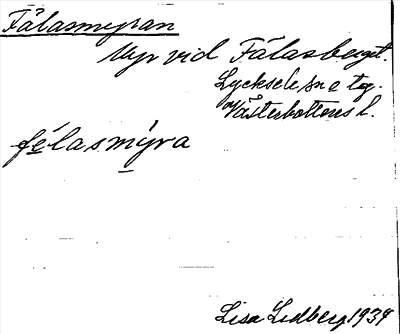 Fålasmyran
Myr vid Fålasberget.
Lycksele sn o tg.
Västerbottens l.
fe̲lasmýra
Lisa Lidberg 1939